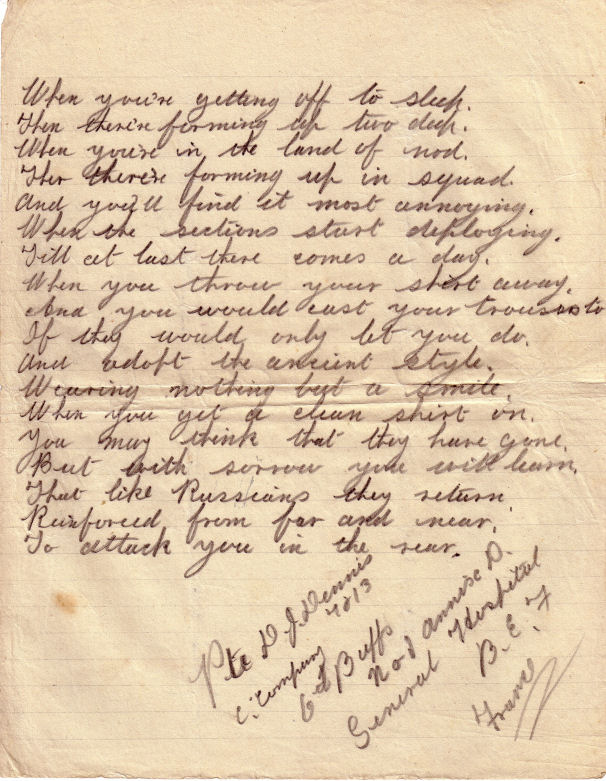 When you're getting off to sleep.
Then there're forming up two deep.
When you're in the land of nod.
Ther there're forming up in squad.
And you'll find it most annoying.
When the sections start deploying.
Till at last there comes a day.
When you throw your shirt away.
And you would cast your trousers to
If they would only let you do.
And adopt the ancient style.
Wearing nothing but a smile.
When you get a clean shirt on.
You may think that they have gone.
But with sorrow you will learn.
That like Russians they return
Reinforced from far and near.
To attack you in the rear.
Pte D. J. Dennis
C. Company 7813
6th Buffs
No 1 Annixe D.
General Hospital
B. E. F
France